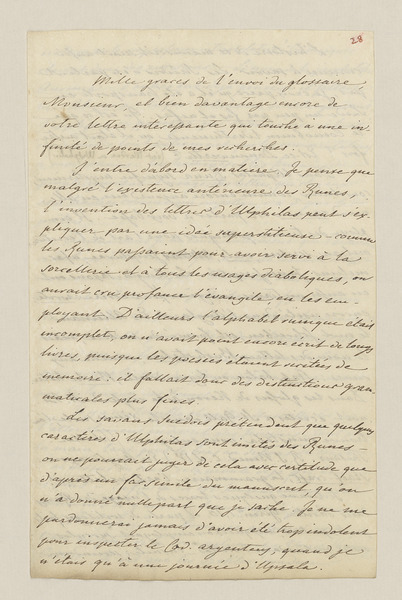 28
Mille graces de l'envoi du glossaire,
Monsieur, et bien davantage encore de
votre lettre intéressante qui touche à une in-
finité de points de mes recherches.
J'entre d'abord en matière. Je pense que
malgré l'existence antérieure des Runes,
l'invention des lettres d'Ulphilas peut s'ex-
pliquer par une idée superstitieuse – comme
les Runes passaient pour avoir servi à la
sorcellerie et à tous les usages diaboliques, on
auroit cru profaner l'évangile, en les em-
ployant. D'ailleurs l'alphabet runique était
incomplet, on n'avait point encore écrit de longs
livres, puisque les poésies étaient récitées de
mémoire: il fallait donc des distinctions gram-
maticales plus fines.
Les savans Suédois prétendent que quelques
caractères d'Ulphilas sont imités des Runes –
on ne pourrait juger de cela avec certitude que
d'après un fac simile du manuscrit, qu'on
n'a donné nulle part que je sache. Je ne me
pardonnerai jamais d'avoir été trop indolent
pour inspecter le Cod. argenteus, quand je
n'étais qu'à une journée d'Upsala.